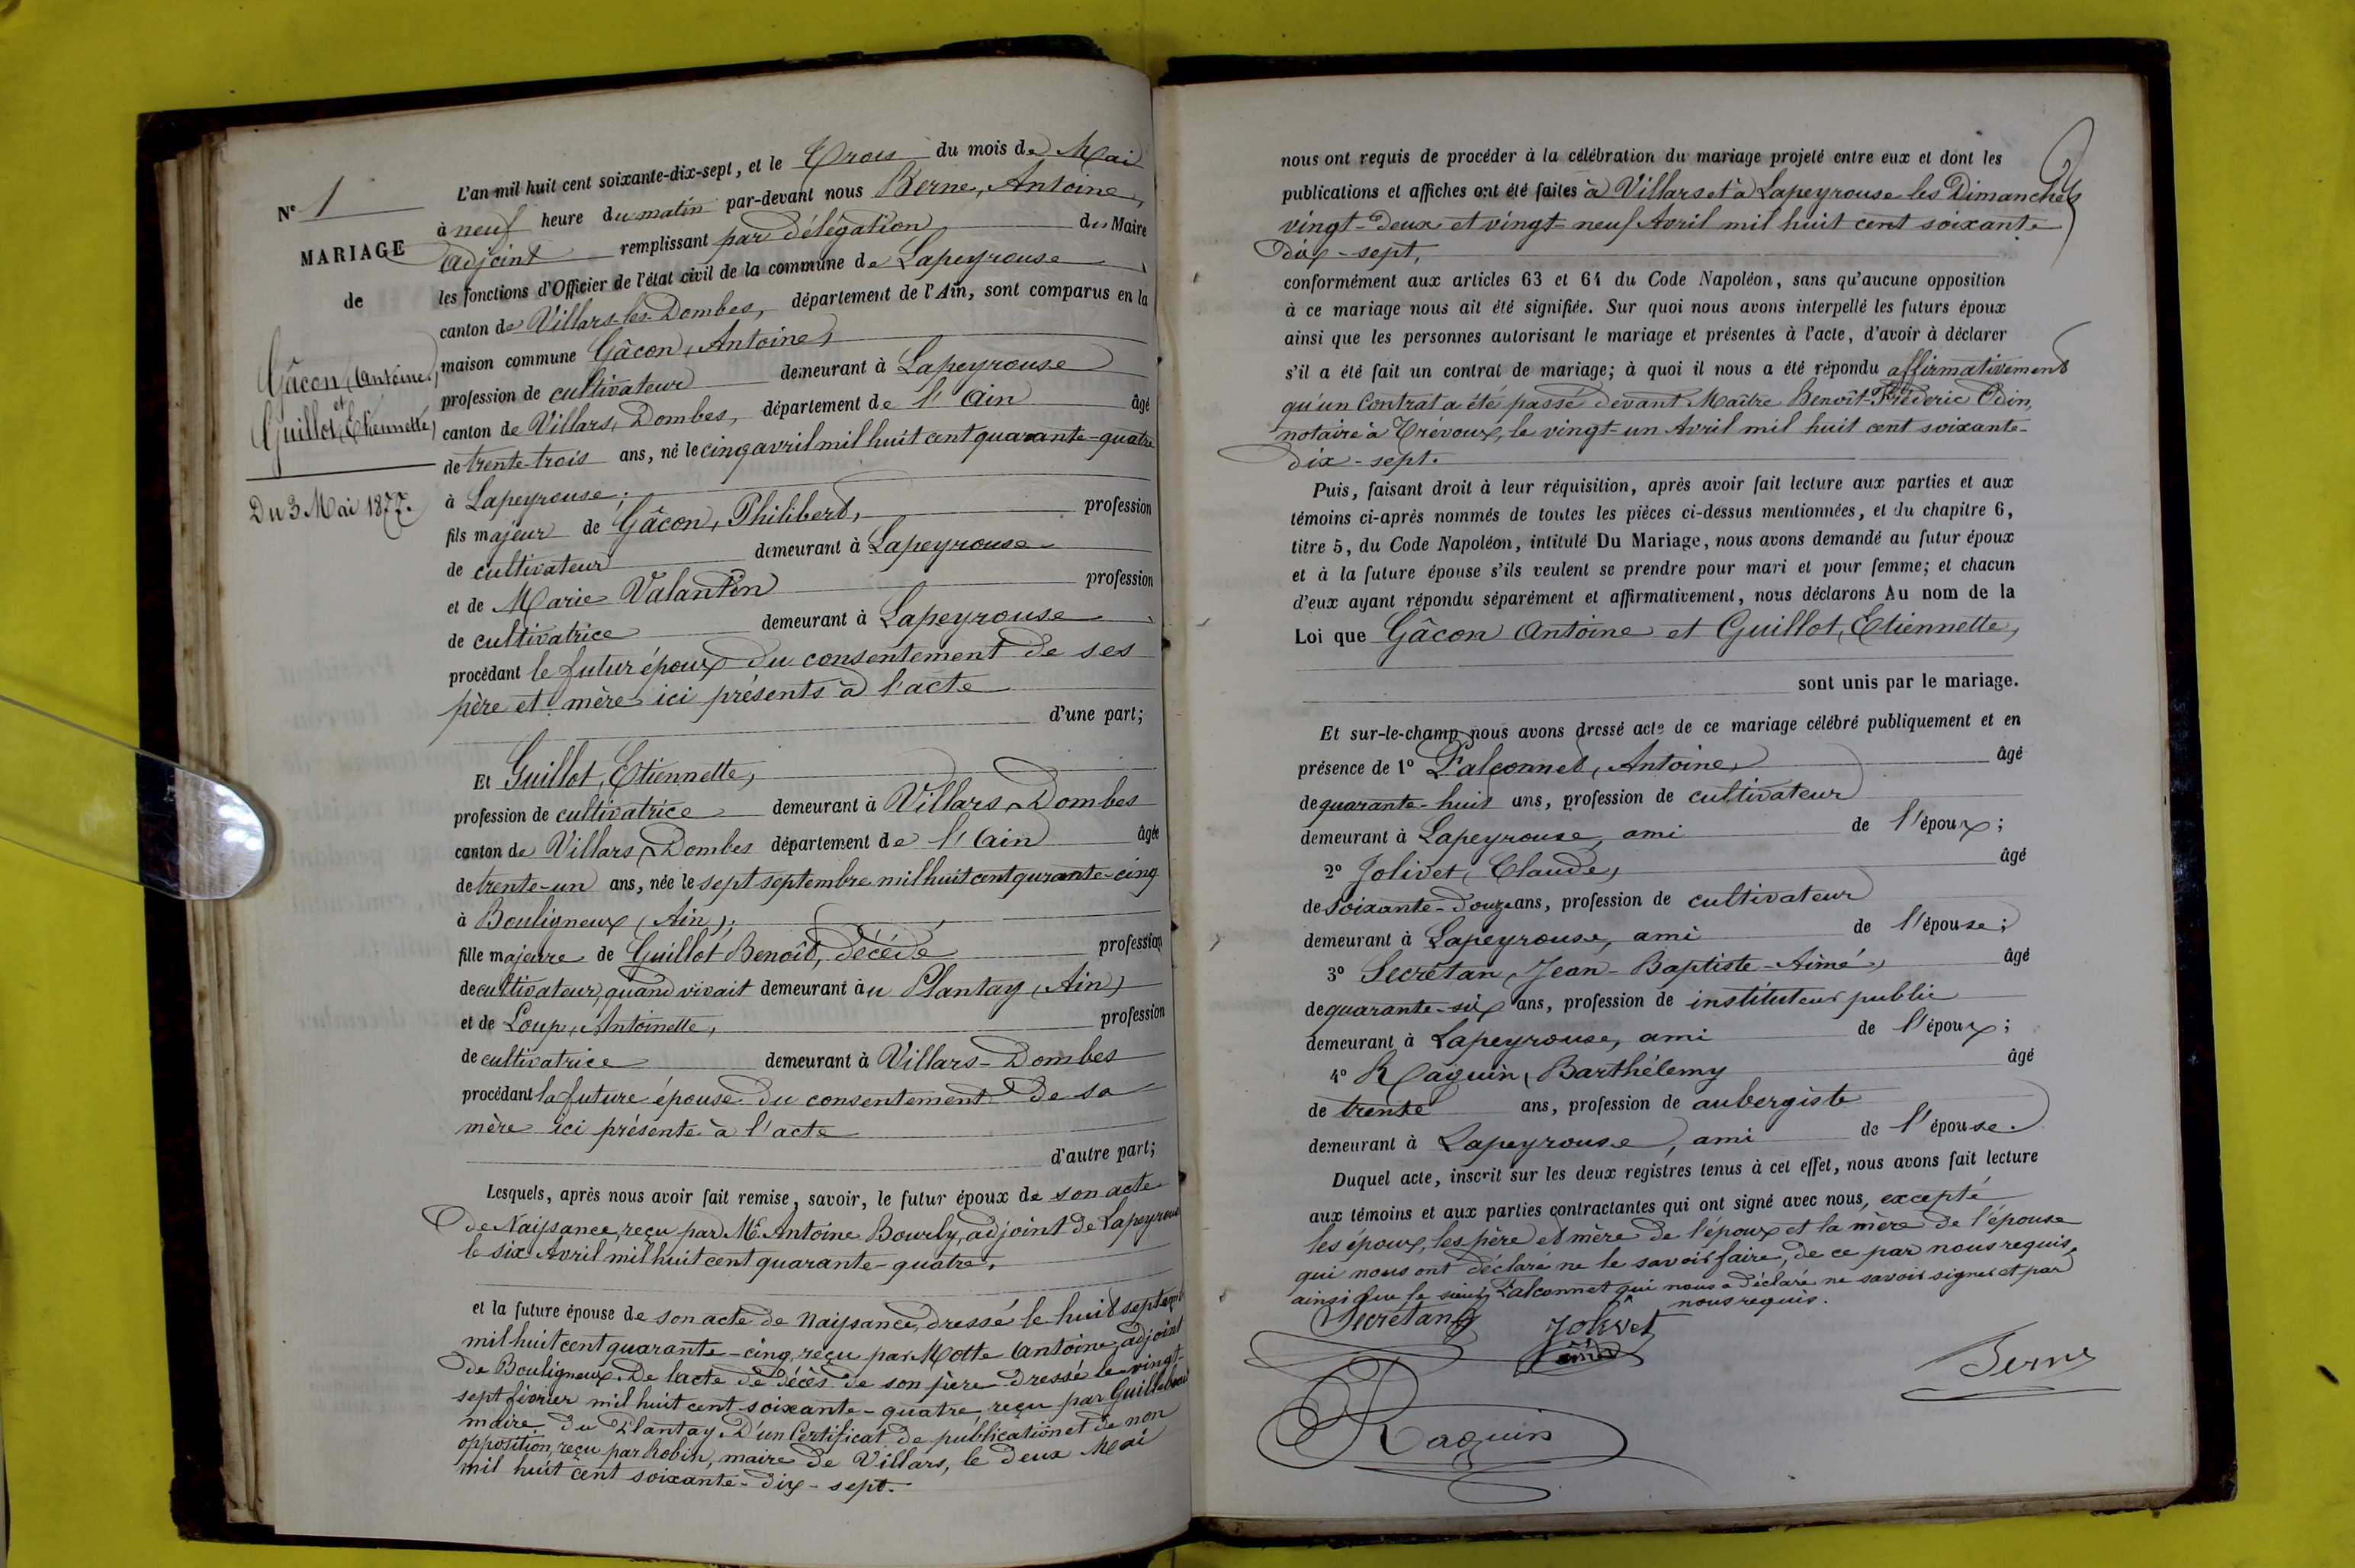 Nº 1
MARIAGE
de
Gâcon, Antoine,
et
Guillot, Etiennette,
Du 3 Mai 1877.
L'an mil huit cent soixante-dix-sept, et le Trois du mois de Mai
à neuf heure du matin par-devant nous Berne, Antoine,
adjoint remplissant par délégation du Maire
les fonctions d'Officier de l'état civil de la commune de Lapeyrouse
canton de Villars-les-Dombes, département de l'Ain, sont comparus en la
maison commune Gâcon, Antoine,
profession de cultivateur demeurant à Lapeyrouse
canton de Villars, Dombes, département de l'Ain âgé
de trente-trois ans, né le cinq avril mil huit cent quarante-quatre
à Lapeyrouse;
fils majeur de Gâcon, Philibert, profession
de cultivateur demeurant à Lapeyrouse
et de Marie Valantin profession
de cultivatrice demeurant à Lapeyrouse
procédant le futur époux du consentement de ses
père et mère ici présents à l'acte
d'une part;
Et Guillot, Etiennette,
profession de cultivatrice demeurant à Villars, Dombes
canton de Villars, Dombes département de l'Ain âgée
de trente-un ans, née le sept septembre mil huit cent qurante-cinq
à Bouligneux (Ain);
fille majeure de Guillot Benoît, décédé profession
de cultivateur, quand vivait demeurant au Plantay (Ain)
et de Loup, Antoinette, profession
de cultivatrice demeurant à Villars-Dombes
procédant la future épouse du consentement de sa
mère ici présente à l'acte
d'autre part;
Lesquels, après nous avoir fait remise, savoir, le futur époux de son acte
de Naissance, reçu par Mr. Antoine Bourly, adjoint de Lapeyrouse
le six Avril mil huit cent quarante-quatre.
et la future épouse de son acte de Naissance, dressé le huit septembre
mil huit cent quarante-cinq, reçu par Motte Antoine, adjoint
de Bouligneux. De l'acte de décès de son père dressé le vingt-
sept février mil huit cent soixante-quatre, reçu par
maire du Plantay. D'un Certificat de publication et de non
opposition, reçu par Robin, maire de Villars, le deux Mai
mil huit cent soixante-dix-sept.
nous ont requis de procéder à la célébration du mariage projeté entre eux et dont les
publications et affiches ont été faites à Villars et à Lapeyrouse les Dimanches
vingt-deux et vingt-neuf Avril mil huit cent soixante
dix-sept,
conformément aux articles 63 et 64 du Code Napoléon, sans qu'aucune opposition
à ce mariage nous ait été signifiée. Sur quoi nous avons interpellé les futurs époux
ainsi que les personnes autorisant le mariage et présentes à l'acte, d'avoir à déclarer
s'il a été fait un contrat de mariage; à quoi il nous a été répondu affirmativement
qu'un Contrat a été passé devant Maître Benoît-Fréderic Odin,
notaire à Trévoux, le vingt-un Avril mil huit cent soixante-
dix-sept.
Puis, faisant droit à leur réquisition, après avoir fait lecture aux parties et aux
témoins ci-après nommés de toutes les pièces ci-dessus mentionnées, et du chapitre 6,
titre 5, du Code Napoléon, intitulé Du Mariage, nous avons demandé au futur époux
et à la future épouse s'ils veulent se prendre pour mari et pour femme; et chacun
d'eux ayant répondu séparément et affirmativement, nous déclarons Au nom de la
Loi que Gâcon Antoine et Guillot, Etiennette,
sont unis par le mariage.
Et sur-le-champ nous avons dressé acte de ce mariage célébré publiquement et en
présence de 1º Falconnet, Antoine, âgé
de quarante-huit ans, profession de cultivateur
demeurant à Lapeyrouse, ami de l'époux;
2º Jolivet, Claude, âgé
de soixante-douze ans, profession de cultivateur
demeurant à Lapeyrouse, ami de l'épouse;
3º Secrétan, Jean-Baptiste-Aimé, âgé
de quarante-six ans, profession de instituteur public
demeurant à Lapeyrouse, ami de l'époux;
4º Raguin, Barthélemy âgé
de trente ans, profession de aubergiste
demeurant à Lapeyrouse, ami de l'épouse.
Duquel acte, inscrit sur les deux registres tenus à cet effet, nous avons fait lecture
aux témoins et aux parties contractantes qui ont signé avec nous, excepté
les époux, les père et mère de l'époux et la mère de l'épouse
qui nous ont déclaré ne le savoir faire, de ce par nous requis,
ainsi que le sieur Falconnet qui nous a déclaré ne savoir signer et par
nous requis.
Secrétan
Jolivet
Raguin
Berne